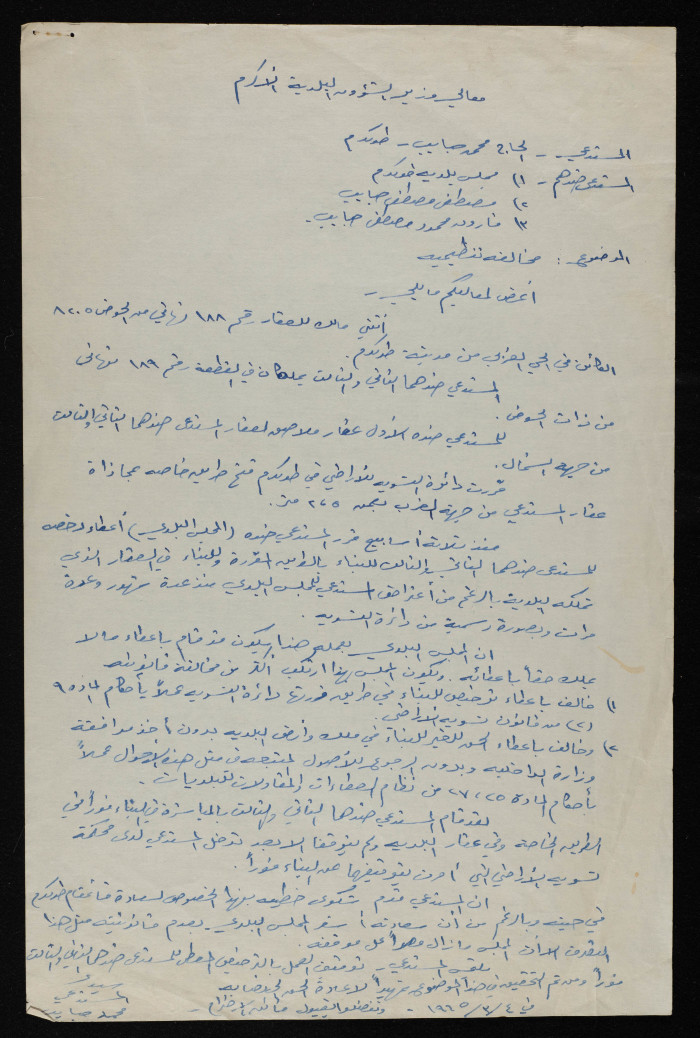 معالي وزير الشؤون البلدية الأكرم
المستدعي - الحاج محمد حبايب - طولكرم
المستدعى ضدهم - ١) مجلس بلدية طولكرم
٢) مصطفى مصطفى حبايب
٣) فاروق محمود مصطفى حبايب
الموضوع : مخالفة تنظيمية
أعرض لمعاليكم ما يلي -
إنني مالك للعقار رقم ١٨٨ نهائي من الحوض ٨٢٠٥
الكائن في الحي الغربي من مدينة طولكرم.
المستدعى ضدهما الثاني والثالث يملكان في القطعة رقم ١٨٩ نهائي
من ذات الحوض.
للمستدعى ضده الأول عقار ملاصق لعقار المستدعى ضدهما الثاني والثالث
من جهة الشمال.
قررت دائرة التسوية للأراضي في طولكرم فتح طريق خاصة بمحاذاة
عقار المستدعي من جهة الغرب بعرض ٢٧٥ متر.
منذ ثلاثة أسابيع قرر المستدعى ضده (المجلس البلدي) أعطاء رخصة
للمستدعى ضدهما الثاني والثالث للبناء بالطريق المقررة وللبناء في العقار الذي
تملكه البلدية بالرغم من أعتراض المستدعي للمجلس البلدي منذ عدة شهور وعدة
مرات وبصورة رسمية من دائرة التسوية.
ان المجلس البلدي بعمله هذا يكون قد قام باعطاء ما لا
يملك حقاً باعطائه. ويكون المجلس بهذا ارتكب أكثر من مخالفة قانونية
١) خالف باعطاء ترخيص للبناء في طريق قررتها دائرة التسوية عملاً بأحكام المادة ٩
(٢) من قانون تسوية الأراضي.
٢) وخالف باعطاء الحق للغير للبناء في ملك وأرض البلدية بدون أخذ موافقة
وزارة الداخلية وبدون الرجوع للأصول المتبعة في مثل هذه الأحوال عملاً
بأحكام المادة ٢٥، ٢٧ من نظام العطاءات والمقاولات للبلديات.
لقد قام المستدعى ضدهما الثاني والثالث بالمباشرة في البناء فوراً في
الطريق الخاصة وفي عقار البلدية ولم يتوقفا الا بعد تدخل المستدعي لدى محكمة
تسوية الأراضي التي أمرت بتوقيفهما عن البناء فوراً.
ان المستدعي قدم شكوى خطية بهذا الخصوص لسعادة قائمقام طولكرم
في حينه وبالرغم من أن سعادته أشعر المجلس البلدي بعدم قانونية مثل هذا
التصرف الا أن المجلس ما زال مصراً على موقفه.
يلتمس المستدعي - توقيف العمل بالترخيص المعطى للمستدعى ضدهما الثاني والثالث
فوراً ومن ثم التحقيق في هذا الموضوع تمهيداً لاعادة الحق لصاحبه
في ٤/٣/١٩٦٥ - وتفضلوا بقبول فائق الاحترام -
المستدعي
محمد حبايب